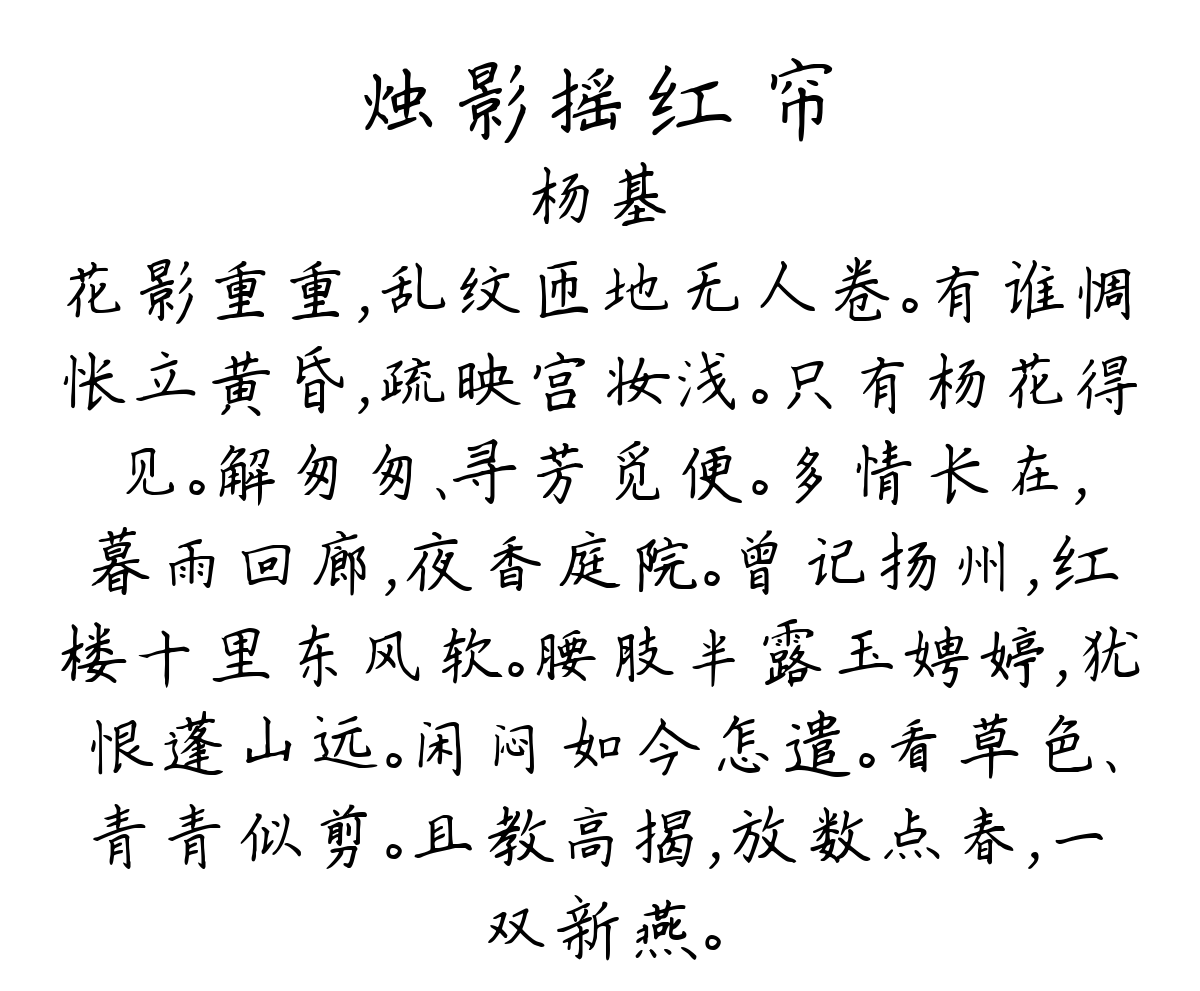 烛影摇红 帘
杨基
花影重重,乱纹匝地无人卷。有谁惆
怅立黄昏,疏映宫妆浅。只有杨花得
见。解匆匆、寻芳觅便。多情长在,
暮雨回廊,夜香庭院。曾记扬州,红
楼十里东风软。腰肢半露玉娉婷,犹
恨蓬山远。闲闷如今怎遣。看草色、
青青似剪。且教高揭,放数点春,一
双新燕。